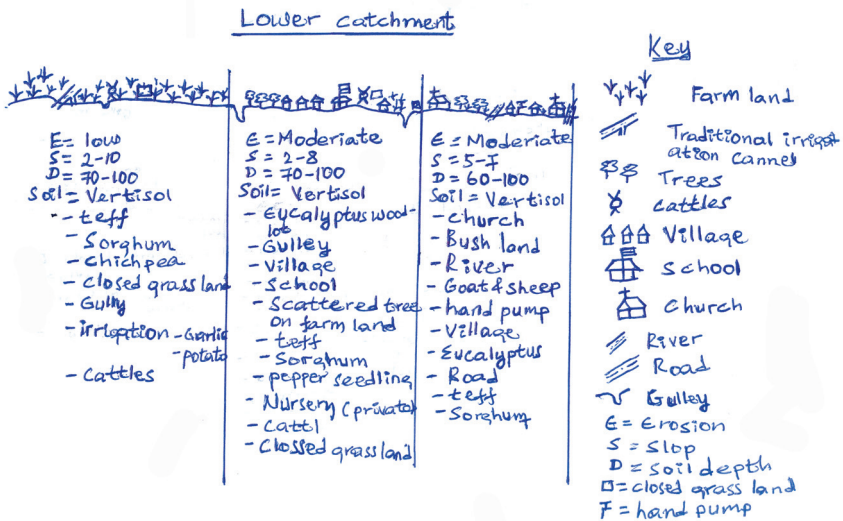 Lower catchment
E = low
S = 2-10
D = 70-100
Soil = Vertisol
- teff
- Sorghum
- chichpea
- closed grass land
- Gully
- irrigation - Garlic
- potato
- cattles
E = Moderiate
S = 2-8
D = 70-100
Soil = Vertisol
- Eycalyptus wood-
lot
- Gulley
- Village
- School
- Scattered tree
on farm land
- teff
- Sorghum
- pepper seedling
- Nursery (private)
- cattl
- Clossed grass land
E = Moderiate
S = 5-7
D = 60-100
Soil = Vertisol
- church
- Bush land
- River
- Goat & sheep
- hand pump
- Village
- Eucalyptus
- Road
- teff
- Sorghum
Key
Farm land
Traditional irrig
ation cannel
Trees
cattles
Village
School
church
River
Road
Gulley
E = Erosion
S = Slop
D = soil depth
= closed grass land
F = hand pump